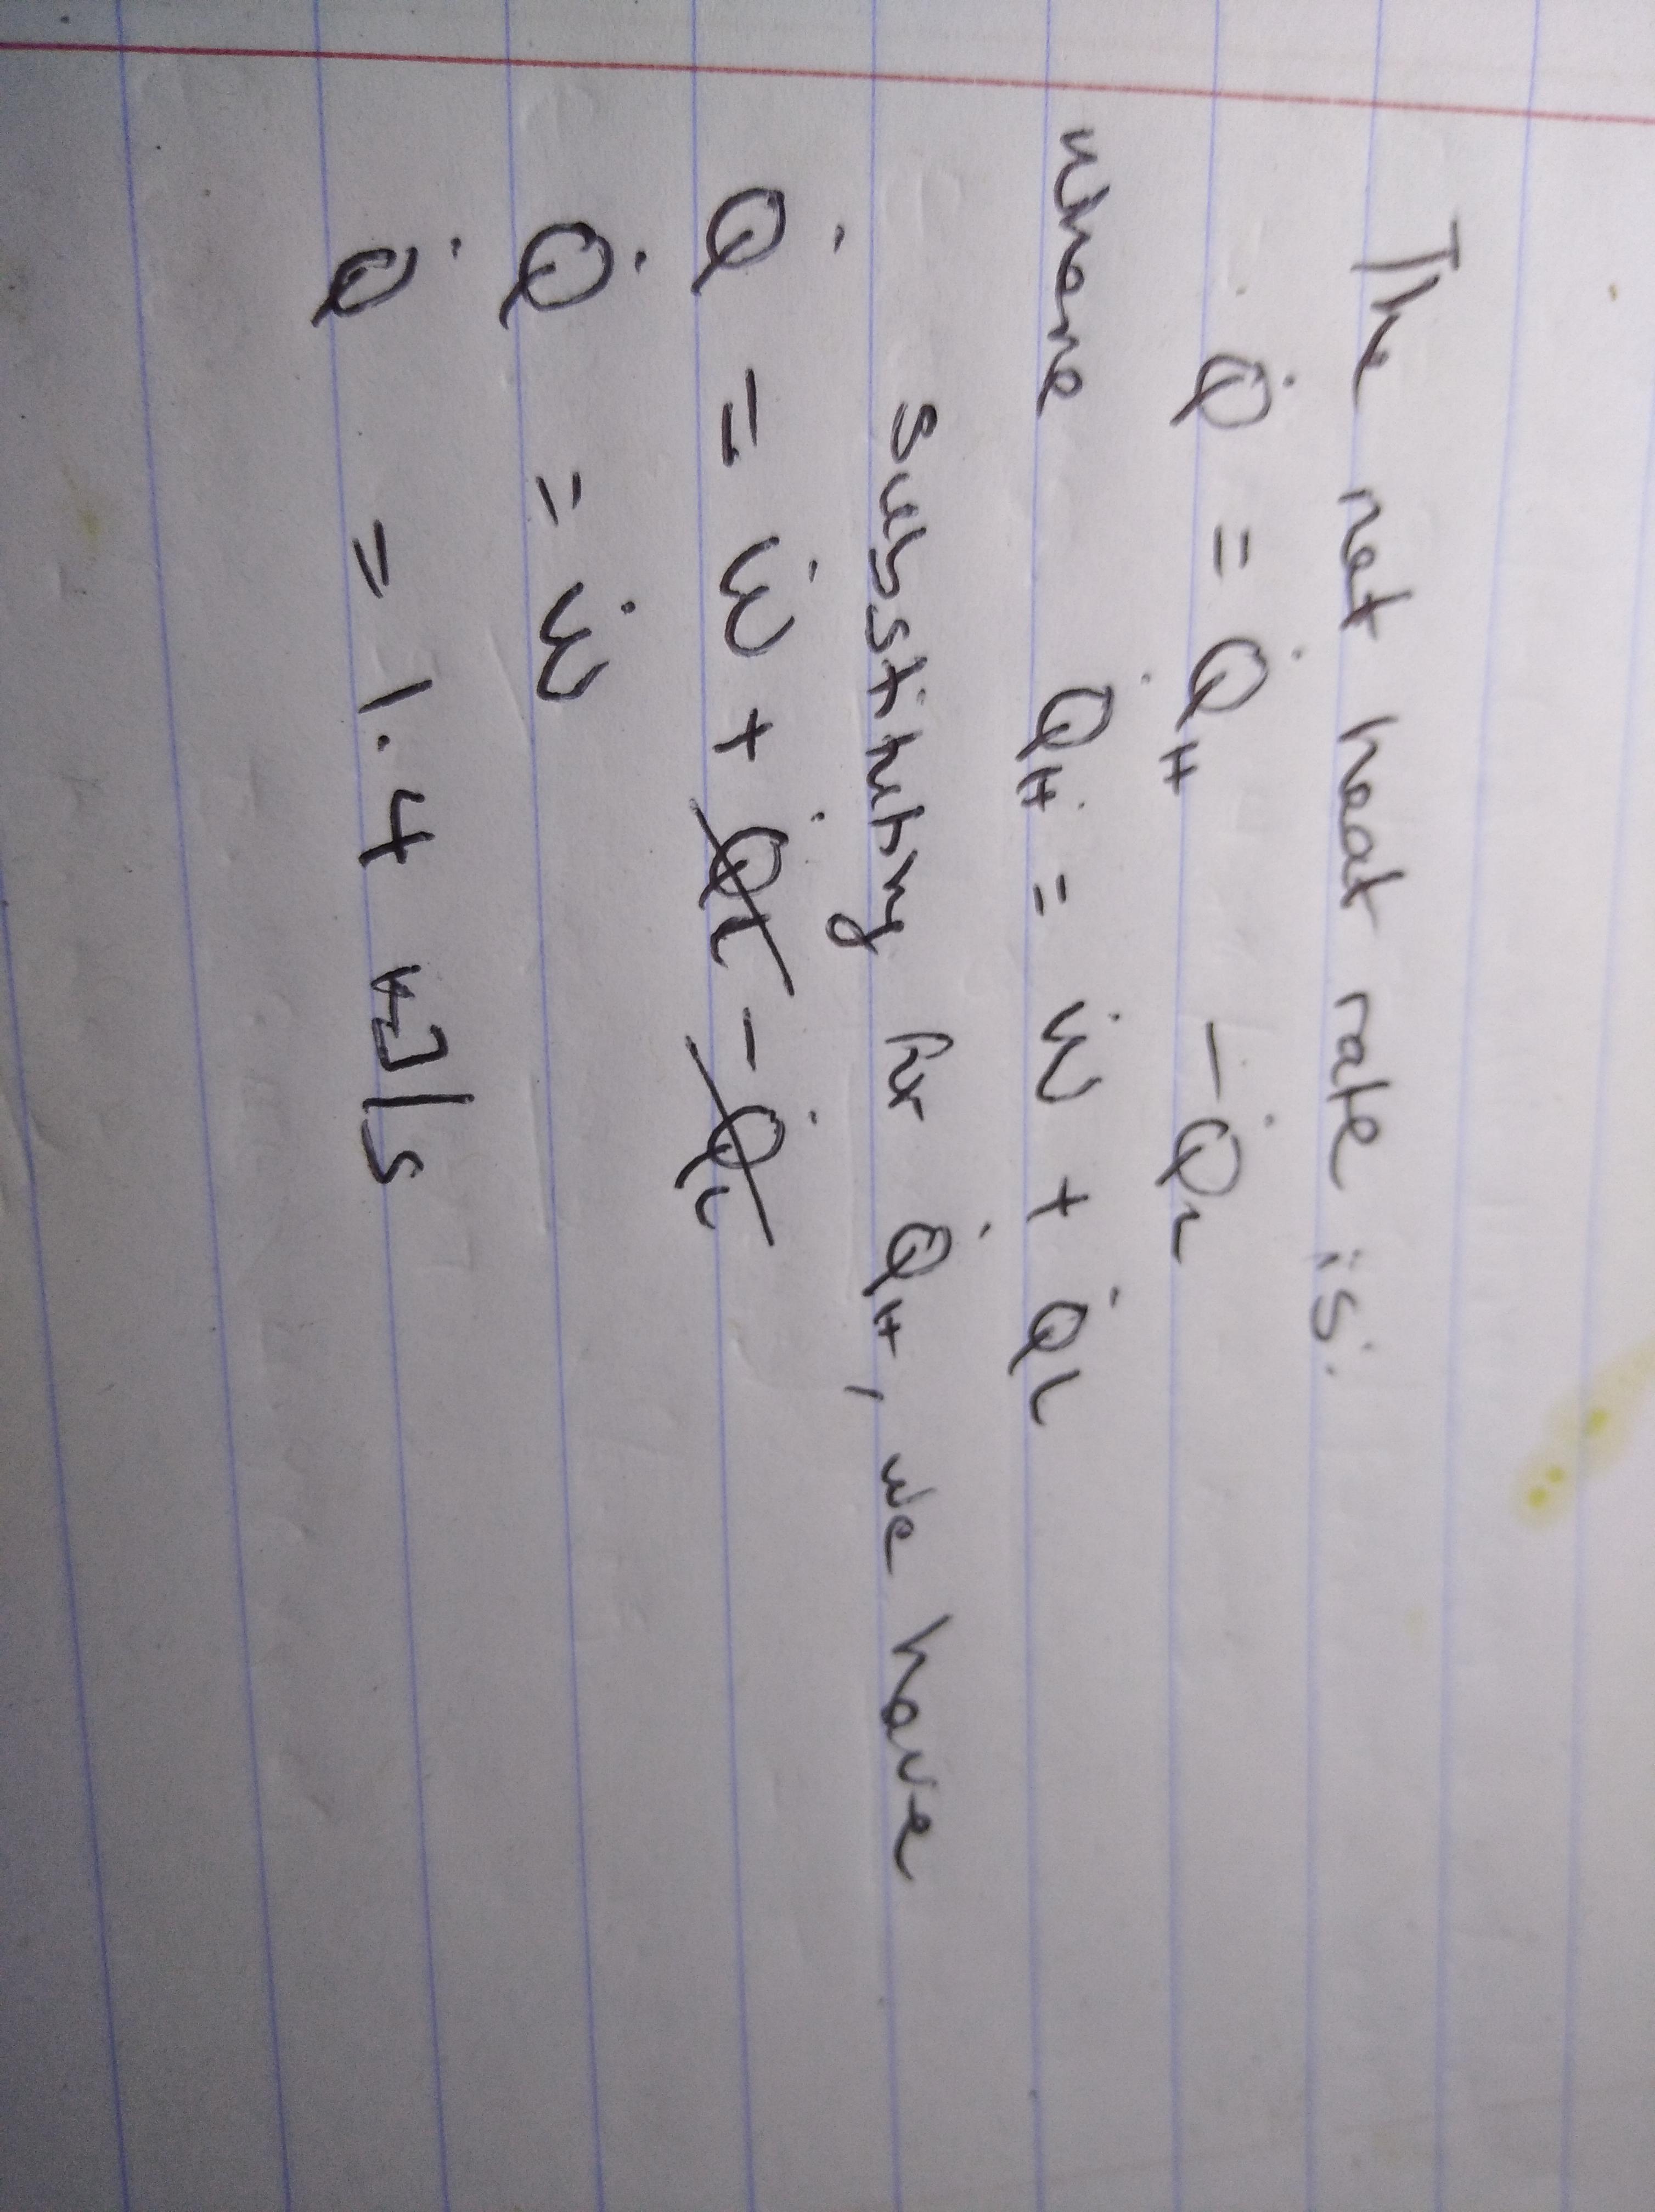 The net heat rate is:
Q̇ = Q̇H - Q̇L
where Q̇H = Ẇ + Q̇L
substituting for Q̇H, we have
Q̇ = Ẇ + Q̇L - Q̇L
Q̇ = Ẇ
Q̇ = 1.4 kJ/s